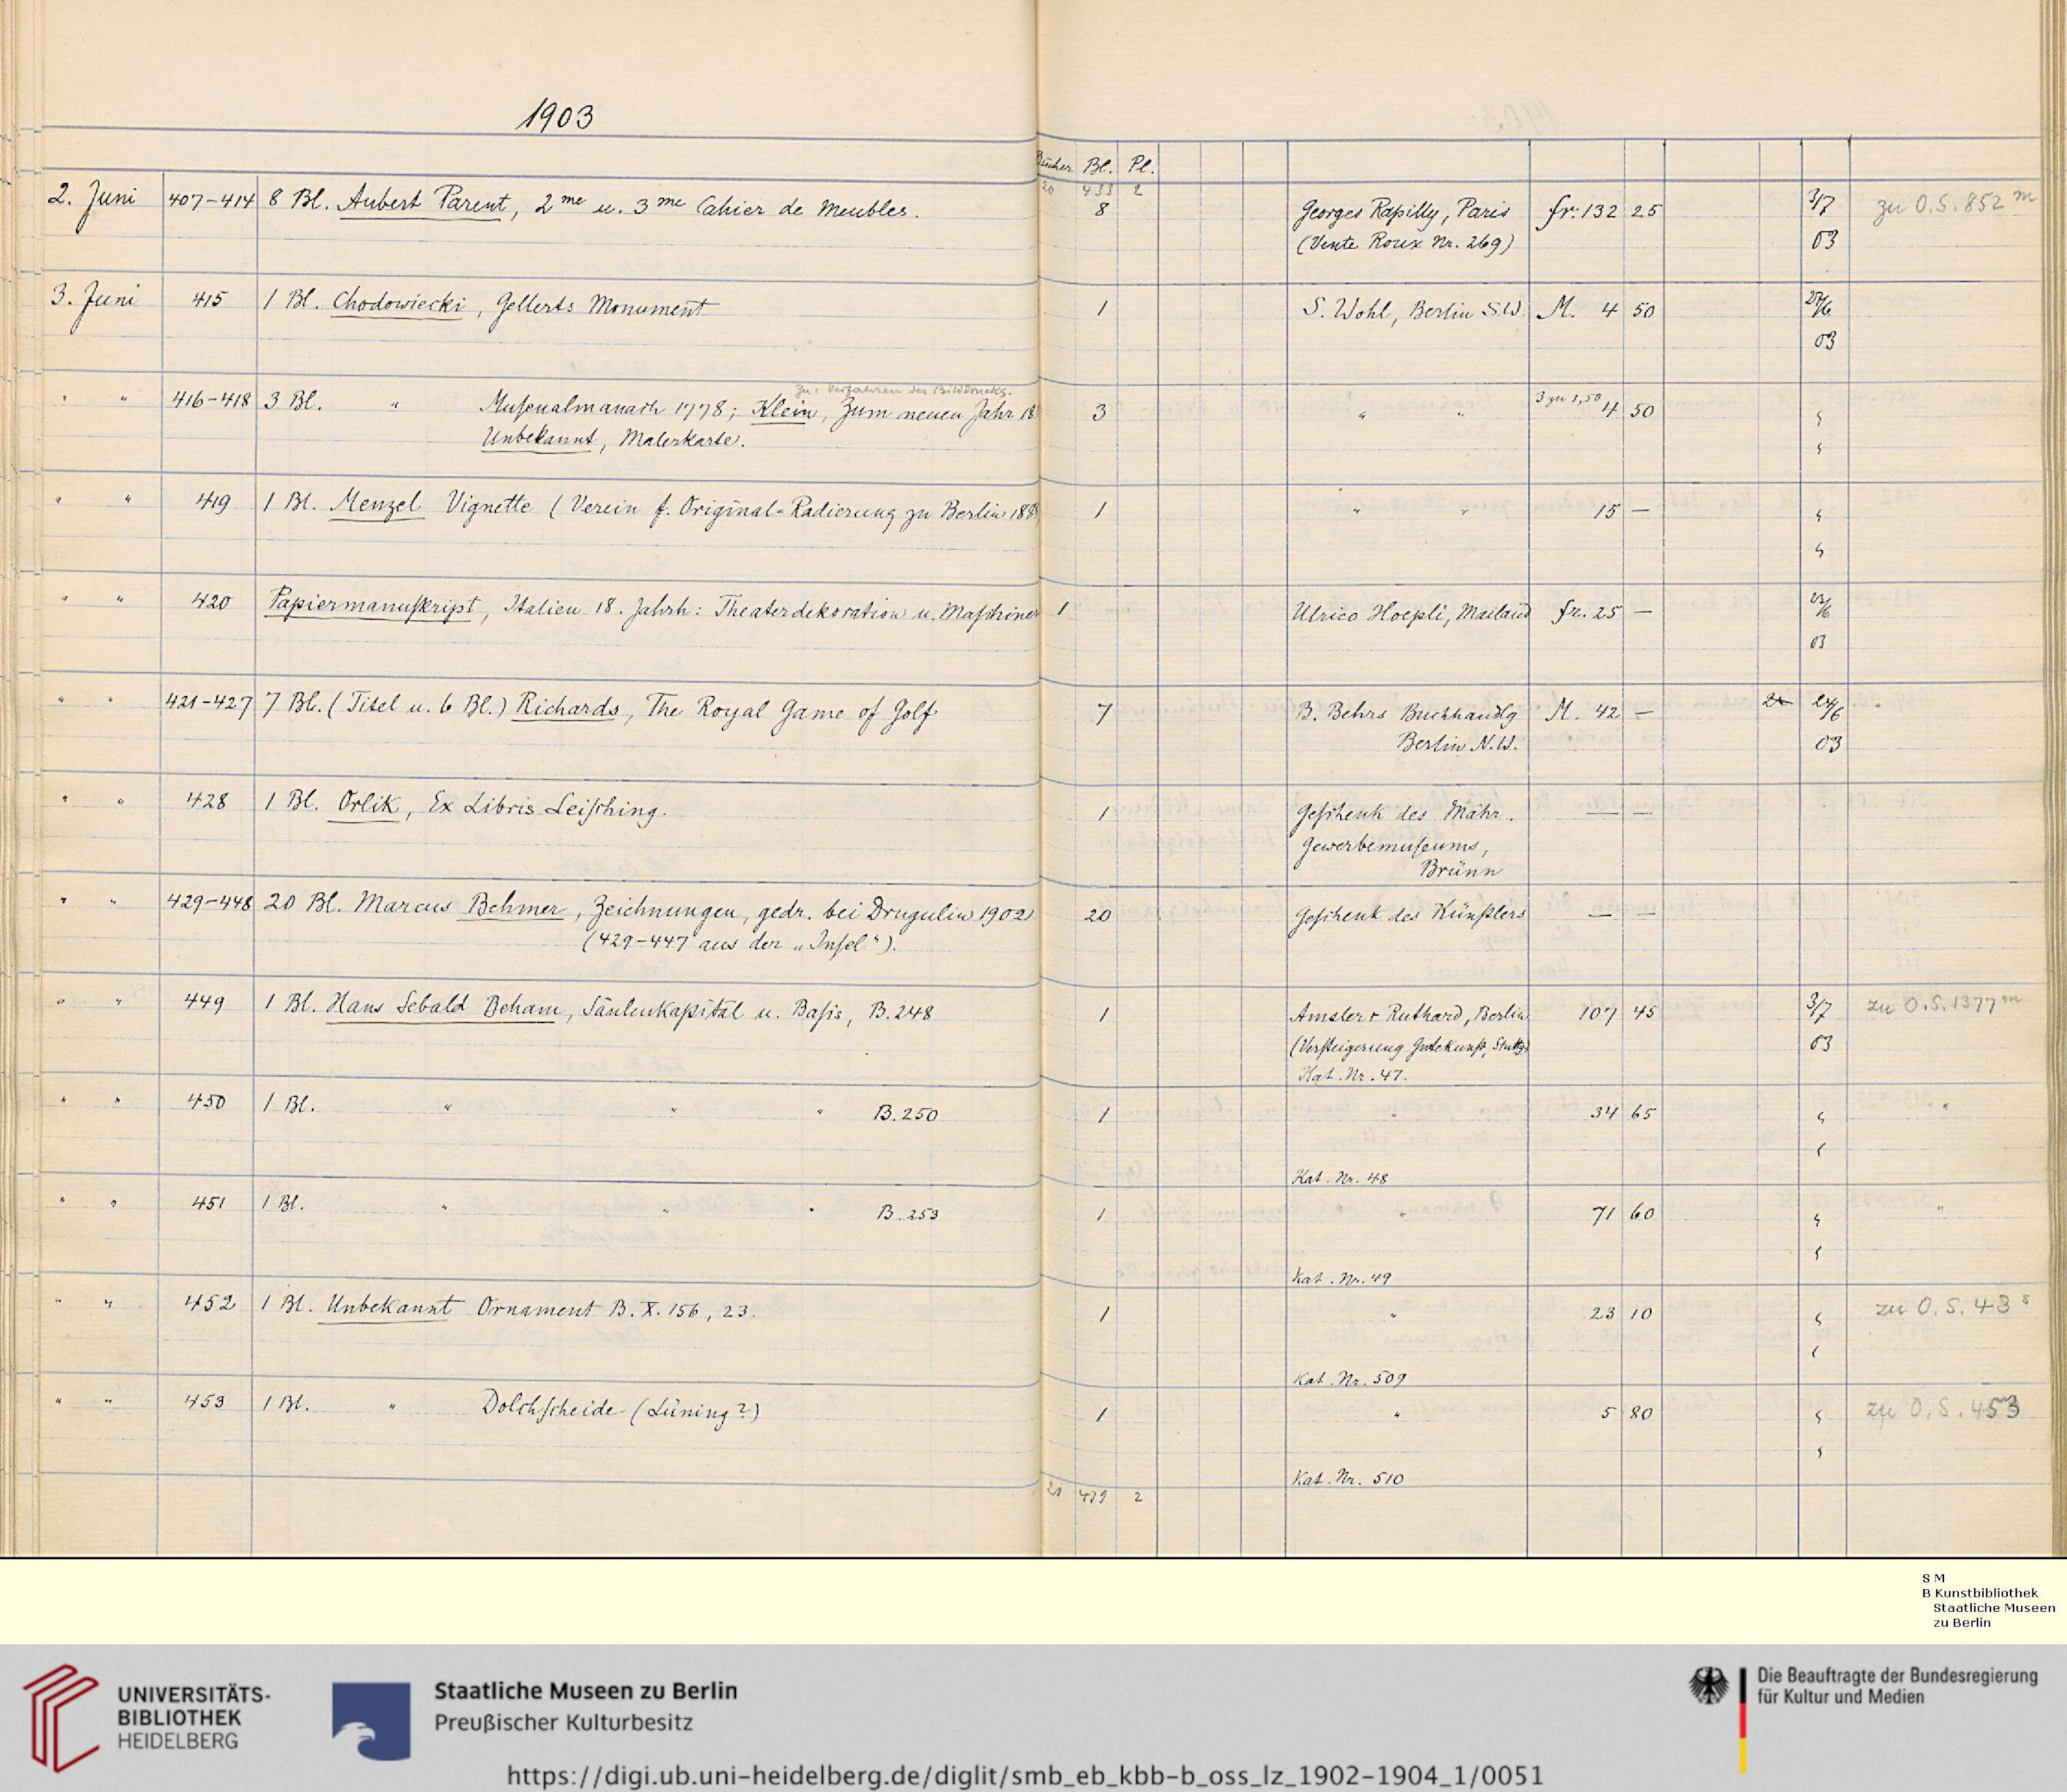 1903
Bücher Bl. Pl.
20 433 2
2. Juni 407-414 8 Bl. Aubert Parent, 2me u. 3me Cahier de Meubles. 8 Georges Rapilly, Paris fr. 132 25 3/7 zu O.S. 852 m
(Vente Roux Nr. 269) 03
3. Juni 415 1 Bl. Chodowiecki, Gellerts Monument 1 S. Wohl, Berlin S.W. M. 4 50 27/6
03
zu: Verfahren des Bilddrucks.
" " 416-418 3 Bl. " Musenalmanach 1778; Klein, Zum neuen Jahr 18 3 " " 3 zu 1,50 4 50 "
Unbekannt, Malerkarte. "
" " 419 1 Bl. Menzel Vignette (Verein f. Original-Radierung zu Berlin 188 1 " " 15 — "
"
" " 420 Papiermanuskript, Italien 18. Jahrh: Theaterdekoration u. Maschinen 1 Ulrico Hoepli, Mailand fr. 25 — 23/6
03
" " 421-427 7 Bl. (Titel u. 6 Bl.) Richards, The Royal Game of Golf 7 B. Behrs Buchhandlg M. 42 — 24/6
Berlin N.W. 03
" " 428 1 Bl. Orlik, Ex Libris Leisching. 1 Geschenk des Mähr. — —
Gewerbemuseums,
Brünn
" " 429-448 20 Bl. Marcus Behmer, Zeichnungen, gedr. bei Drugulin 1902 20 Geschenk des Künstlers — —
(429-447 aus der „Insel“).
" " 449 1 Bl. Hans Sebald Beham, Säulenkapitäl u. Basis, B. 248 1 Amsler & Ruthard, Berlin 107 45 3/7 zu O.S. 1377 m
(Versteigerung Gutekunst, Stuttg) 03
Kat. Nr. 47.
" " 450 1 Bl. " " " B. 250 1 " 34 65 " "
"
Kat. Nr. 48
" " 451 1 Bl. " " " B. 253 1 " 71 60 " "
"
Kat. Nr. 49
" " 452 1 Bl. Unbekannt Ornament B. X. 156, 23. 1 " 23 10 " zu O.S. 43 s
"
Kat. Nr. 509
" " 453 1 Bl. " Dolchscheide (Lüning?) 1 " 5 80 " zu O.S. 453
"
Kat. Nr. 510
21 479 2
S M
B Kunstbibliothek
Staatliche Museen
zu Berlin
UNIVERSITÄTS-
BIBLIOTHEK
HEIDELBERG
Staatliche Museen zu Berlin
Preußischer Kulturbesitz
Die Beauftragte der Bundesregierung
für Kultur und Medien
https://digi.ub.uni-heidelberg.de/diglit/smb_eb_kbb-b_oss_lz_1902-1904_1/0051